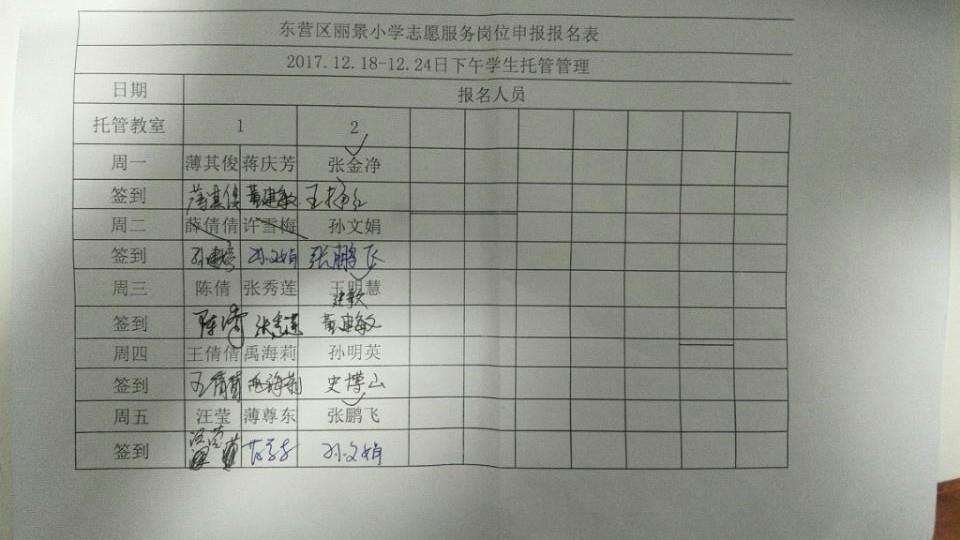 东营区丽景小学志愿服务岗位申报报名表
2017.12.18-12.24日下午学生托管管理
日期 报名人员
托管教室 1 2
周一 薄其俊 蒋庆芳 张金净
签到 薄其俊 董建敏
周二 薛倩倩 许雪梅 孙文娟
签到 孙文娟 张鹏飞
周三 陈倩 张秀莲 王明慧
签到 陈倩 张秀莲 董建敏
周四 王倩倩 禹海莉 孙明英
签到 王倩倩 禹海莉 史博山
周五 汪莹 薄尊东 张鹏飞
签到 汪莹 孙文娟